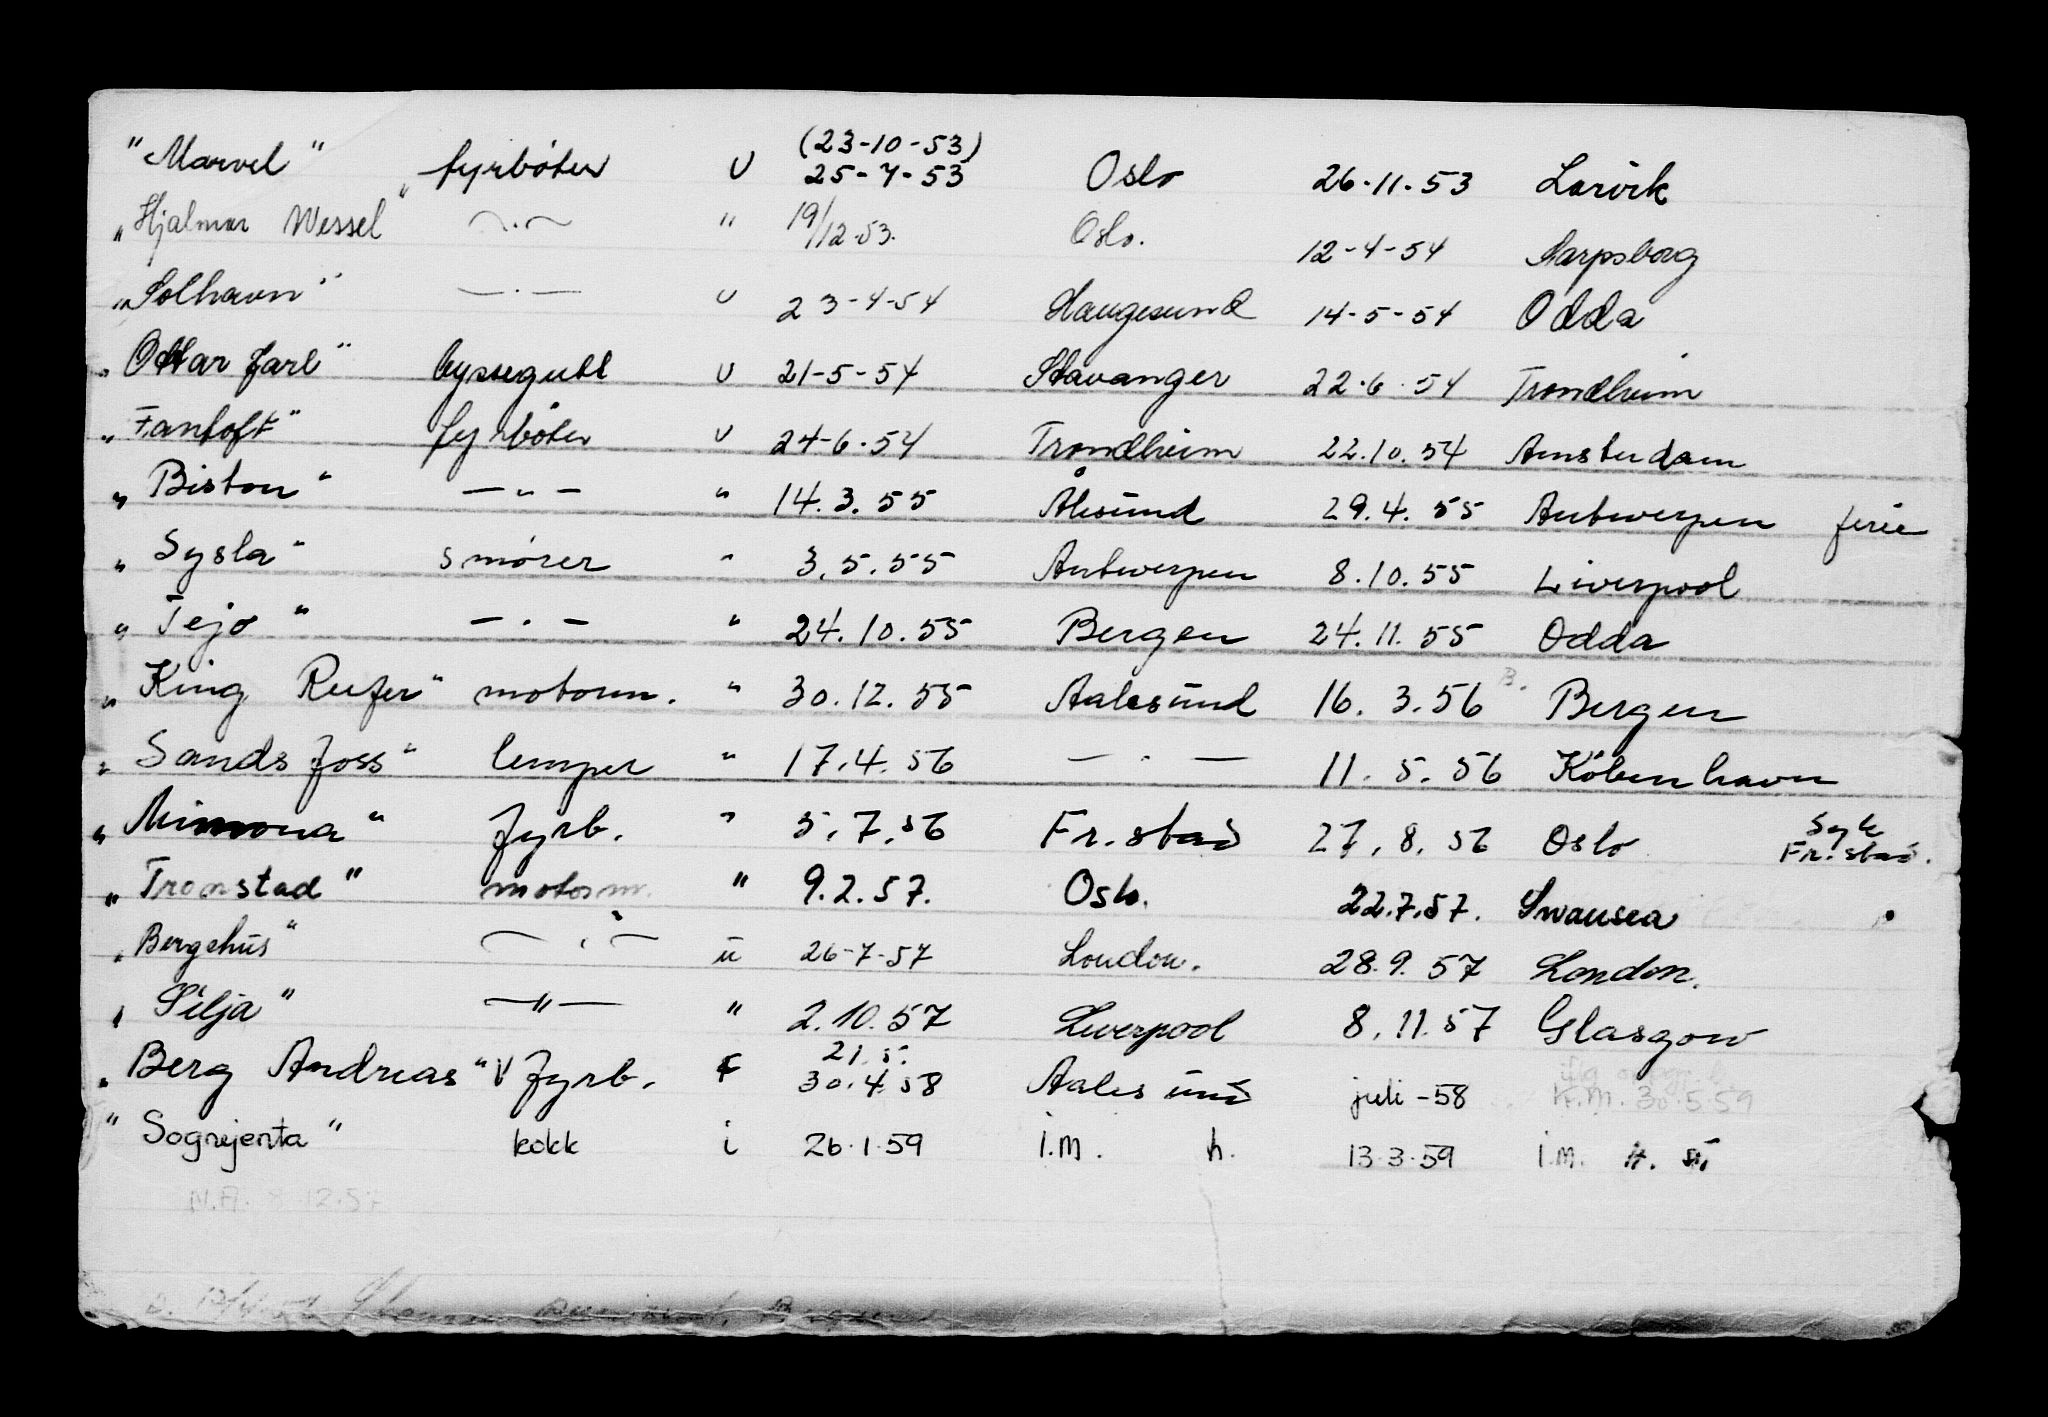 (23-10-53)
"Marvel" fyrbøter U 25-7-53 Oslo 26-11-53 Larvik
"Hjalmar Wessel" —·— " 19/12-53. Oslo. 12-4-54 Sarpsborg
"Solhavn" —·— U 23-4-54 Haugesund 14-5-54 Odda
"Ottar Jarl" byssegutt U 21-5-54 Stavanger 22-6-54 Trondheim
"Fantoft" fyrbøter U 24-6-54 Trondheim 22.10.54 Amsterdam
"Biston" —"— " 14.3.55 Ålesund 29.4.55 Antwerpen ferie
"Sysla" smører " 3.5.55 Antwerpen 8.10.55 Liverpool
"Tejo" —·— " 24.10.55 Bergen 24.11.55 Odda
"King Rufer" motorm. " 30.12.55 Aalesund 16.3.56 Bergen
"Sandsfoss" lemper " 17.4.56 —·— 11.5.56 København
"Mimona" fyrb. " 5.7.56 Fr.stad 27.8.56 Oslo Syk Fr.stad.
"Tronstad" motorm. " 9.2.57. Oslo. 22.7.57. Swansea
"Bergehus" —·— " 26-7-57 London. 28.9.57 London.
"Silja" —"— " 2.10.57 Liverpool 8.11.57 Glasgow
21.5.
"Berg Andreas" V fyrb. 30.4.58 Aalesund juli-58
K.M. 30.5.59
"Sognejenta" kokk i 26.1.59 i.m. h. 13.3.59 i.m.
N.A. 8.12.57